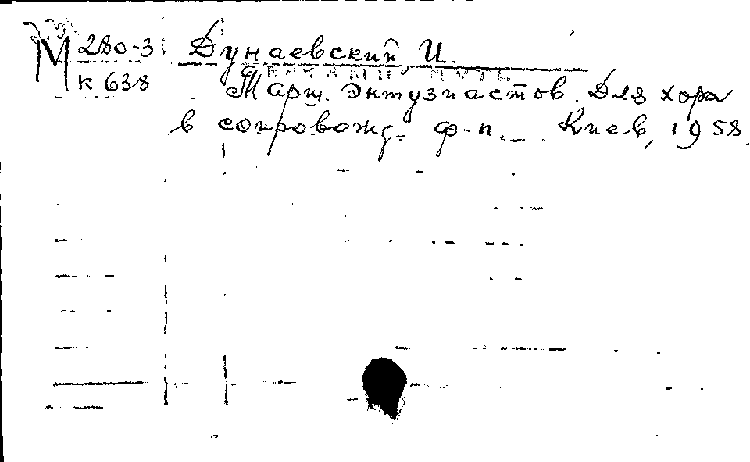 М 280-3 Дунаевский И.
к 638 Марш энтузиастов. Для хора
в сопровожд. ф-п. Киев, 1958.